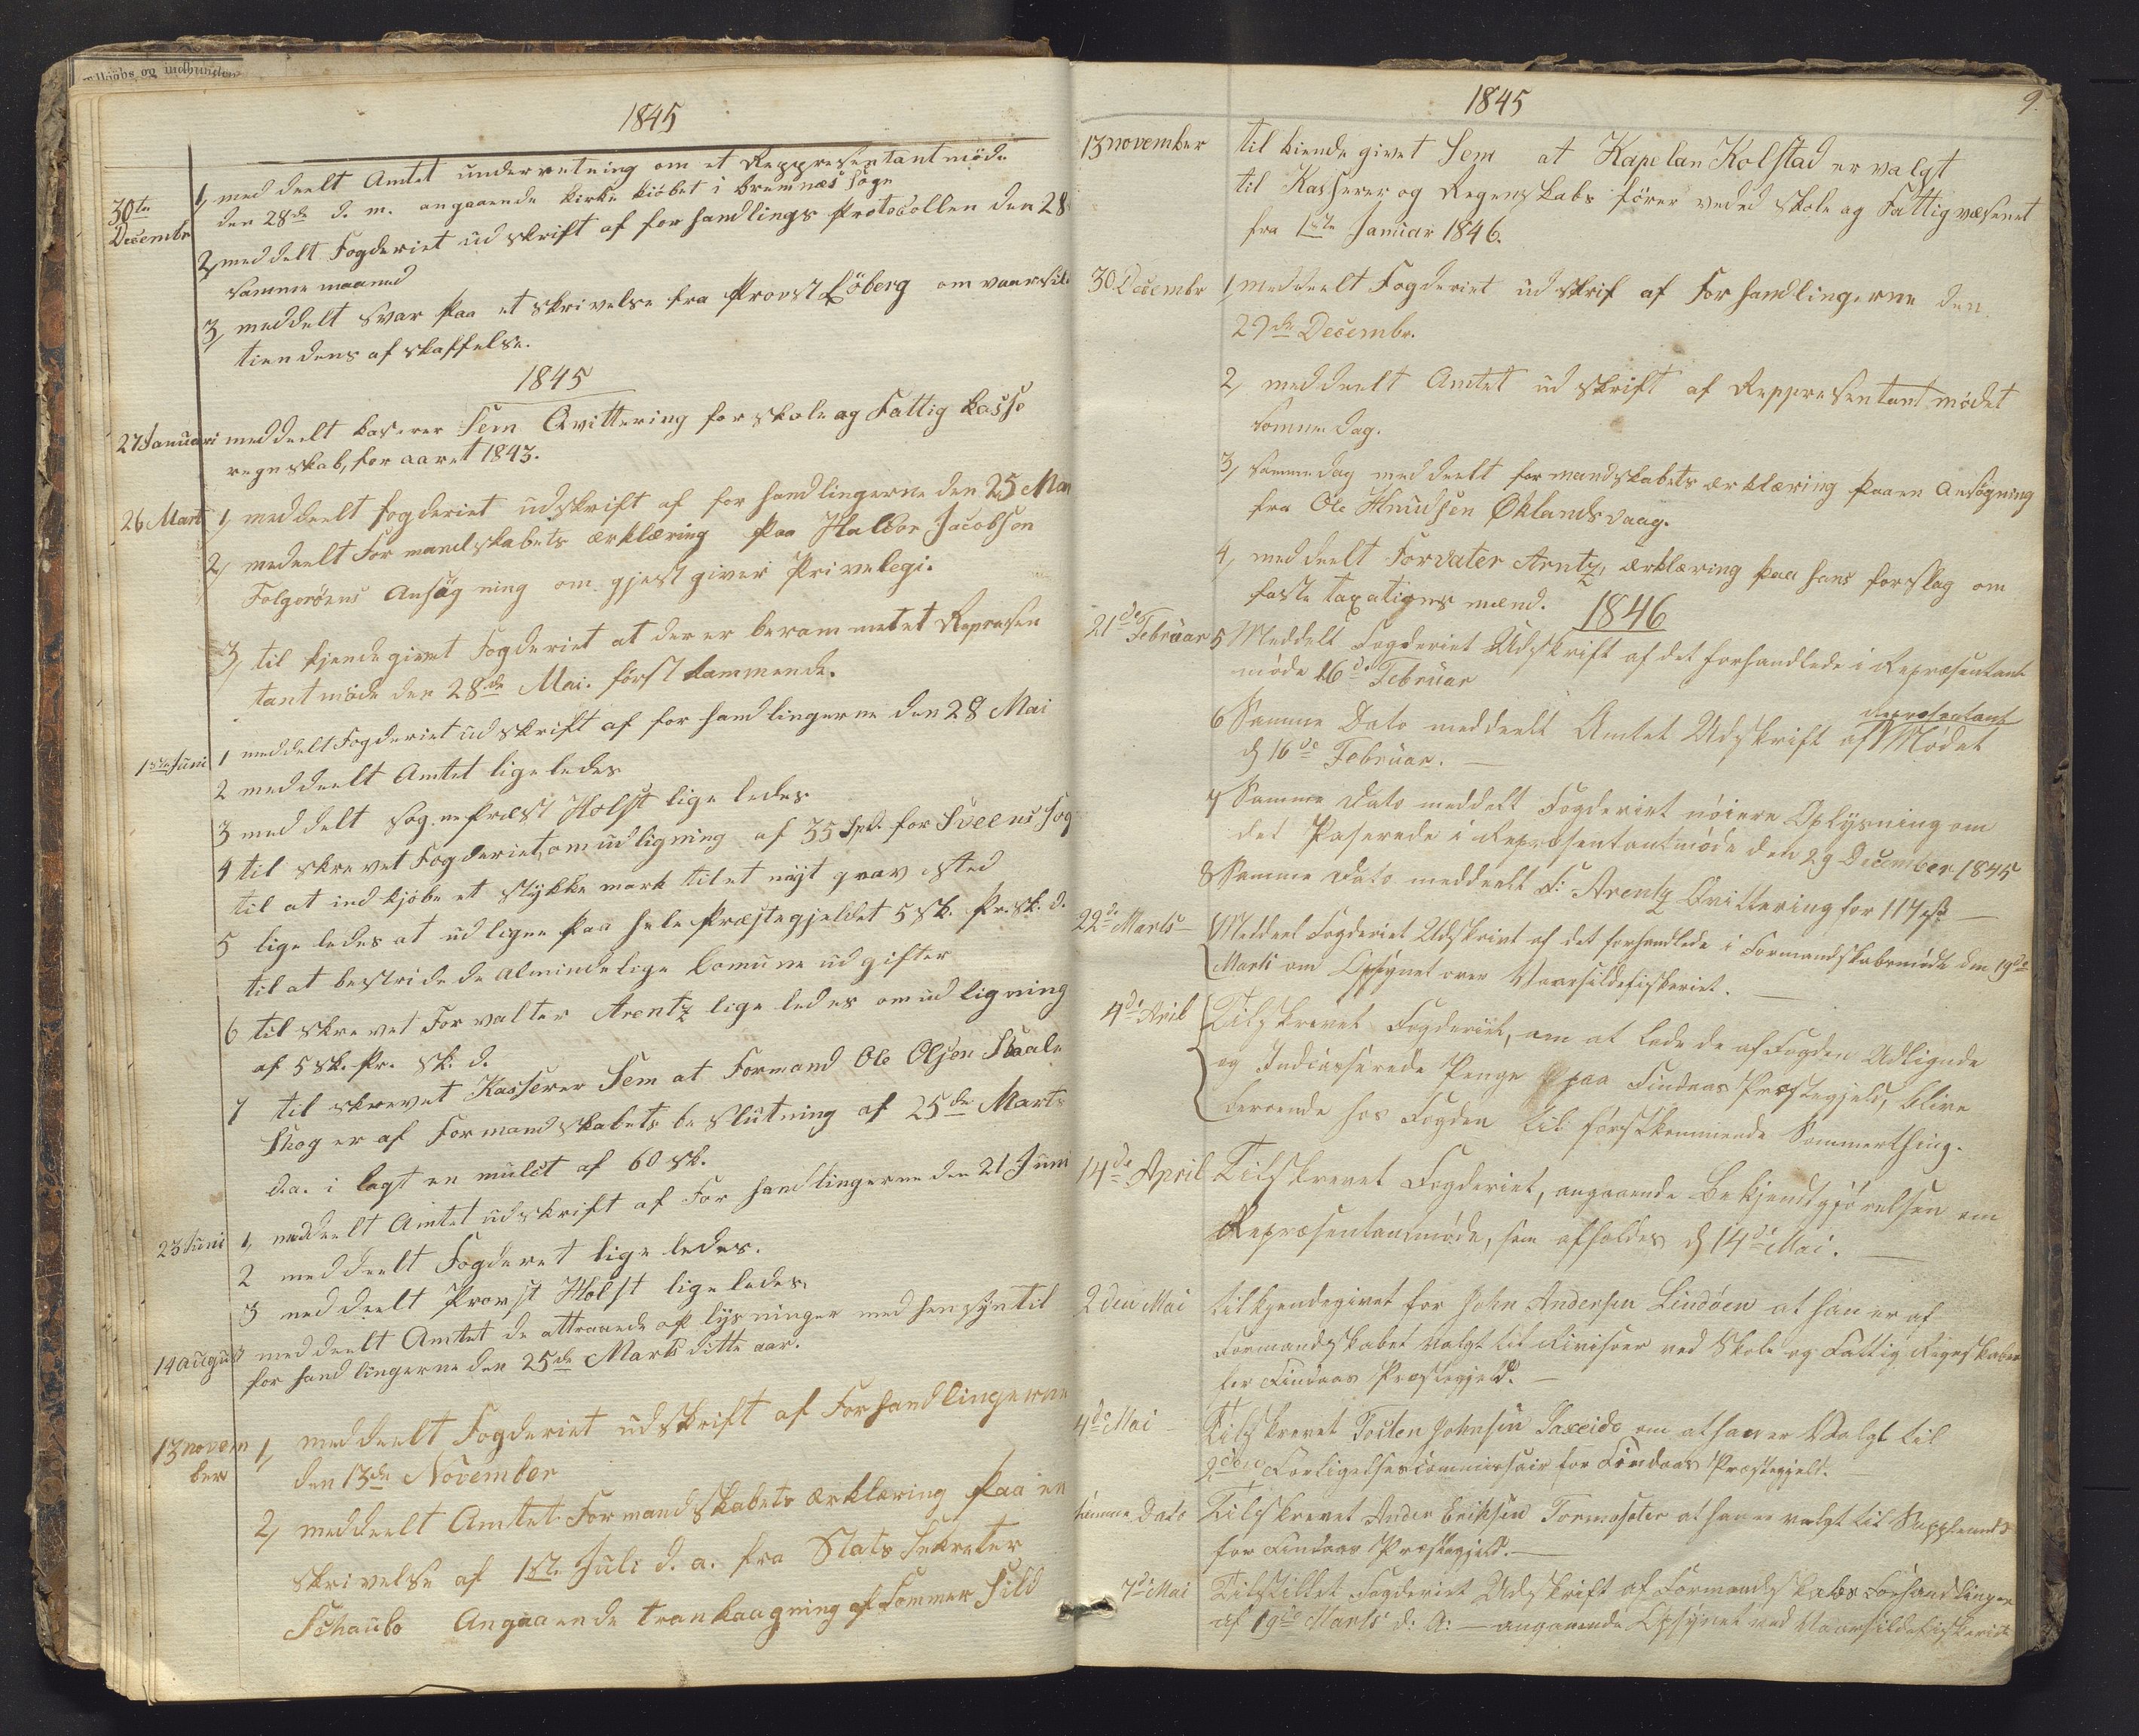 1845
30te Decembr
1, meddeelt Amtet underretning om et Reppresentantmøde
den 28de d. m. angaaende kirke kiöbet i bremnæs sogn
2, meddelt Fogderiet udskrift af forhandlings Protocollen den 28
samme maaned
3, meddelt svar paa et skrivelse fra Provst Löberg om vaarsild
tiendens afskaffelse.
1845
27 Januari meddeelt kaserer Sem Qvittering for skole og Fattig kasse
regnskab, for aaret 1843.
26 Marts 1, meddeelt fogderiet udskrift af forhandlingerne den 25 Mar
2, medeelt Formandskabets ærklæring paa Haldor Jacobson
Folgerøens Ansögning om gjestgiver Privelegi.
3, til kjendegivet Fogderiet at der er berammet et Represen
tantmøde den 28de Mai. först kammende.
1ste Juni 1 meddelt Fogderiet udskrift af forhandlingerne den 28 Mai
2 meddeelt Amtet ligeledes
3 meddelt sognepræst Holst ligeledes
4 til skrevet Fogderiet, om udligning af 35 Spd. for Sveens Sog
til at indkjøbe et stykke mark til et nyt gravsted
5 ligeledes at udligne paa hele Præstegjeldet 5 sk. pr. sk. d.
til at bestride de almindelige Comune udgifter
6 til skrevet Forvalter Arentz ligeledes om udligning
af 5 sk. pr. sk. d.
7 til skrevet Kasserer Sem at Formand Ole Olsen Staale
Skog er af Formandskabets beslutning af 25de Marts
d.a. i lagt en mulct af 60 sk.
23 Juni 1, meddeelt Amtet udskrift af Forhandlingerne den 21 Juni
2 meddeelt Fogderet ligeledes.
3 meddeelt Provst Holst ligeledes,
14 august meddeelt Amtet de attraaede oplysninger med hensyn til
forhandlingerne den 25de Marts ditte aar.
13 novem
ber
1, meddeelt Fogderiet udskrift af Forhandlingerne
den 13de November
2, meddeelt Amtet Formandskabets ærklæring paa en
skrivelse af 1st. Juli d. a. fra Stats Sekreter
Schaubo Angaaende trankaagning af Sommer Sild
1845
9.
13 november til kiende givet Sem at Kapelan Kolstad er valgt
til Kasserer og Regenskabs fører veded skole og Fattigvæsenet
fra 1ste Januar 1846.
30 Decembr 1, meddeelt Fogderiet udskrif af Forhandlingerne den
29de Decembr.
2, meddeelt Amtet udskrift af Reppresentantmødet
somme dag.
3, sammedag meddeelt formandskabets ærklæring paa en ansøgning
fra Ole Knudsen Øklandsvaag.
4, meddeelt Forvater Arntz, ærklæring paa hans forslag om
faste taxations mænd.
1846
21de Februar 5 Meddelt Fogderiet Udskrift af det forhandlede i Repræsentant
møde 16de Februar
6 Samme Dato meddeelt Amtet Udskrift af Repræsentant Mødet
d 16de Februar. —
7 Samme Dato meddelt Fogderiet nöiere Oplysning om
det Paserede i Repræsentantmøde den 29 December 1845
8 Samme Dato meddeelt F: Arentz Qvittering for 117 —
22de Marts — Meddeel Fogderiet Udskrivt af det forhandlede i Formandskabsmöde den 19de
Marts om Opsynet over Vaarsildefiskeriet. —
4de Aril Tilskrevet Fogderiet, om at lade de af Fogden Udlignde
og Indcasserede Penge paa Findaas Præstegjeld, blive
beroende hos Fogden til förstkommende Sommerthing.
14de April Tilskrevet Fogderiet, angaaende Bekjendtgjörelsen om
Repræsentanmøde, som afholdes d 14de Mai. —
2den Mai tilkjendegivet for John Andersen Lindöen at han er af
Formandskabet valgt til Rivisoer ved Skole og Fattig Regnskaber
for Findaas Præstegjeld. —
4de Mai — Tilskrevet Tosten Johnsen Saxeide om at han er Valgt til
2den Forligelsescommissair for Findaas Præstegjeld.
samme Dato Tilskrevet Ander Eriksen Tormosæter at han er valgt til Suppleant
for Findaas Præstegjeld. —
7de Mai Tilstillet Fogderiet Udskrift af Formandskabs Forhandlinger
af 19de Marts d: A: — angaaende Opsynet ved Vaarsildefiskeriet